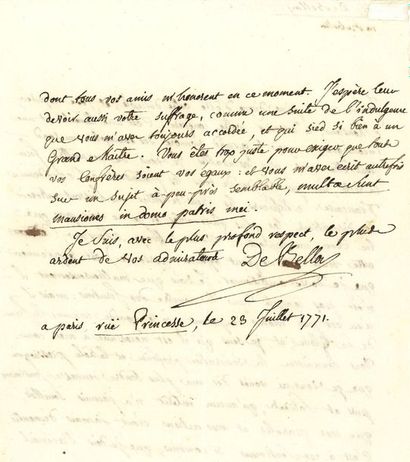 dont tous vos amis m'honorent en ce moment. J'espère leur
devoir aussi votre suffrage, comme une suite de l'indulgence
que vous m'avez toujours accordée, et qui sied si bien à un
Grand Maître. Vous êtes trop juste pour exiger que tous
vos Confrères soient vos égaux : et vous m'avez écrit autrefois
sur un sujet à peu près semblable, multæ sunt
mansiones in domo patris mei.
Je suis, avec le plus profond respect, le plus
ardent de vos admirateurs
De Belloy
a paris ruë Princesse, le 23 Juillet 1771.